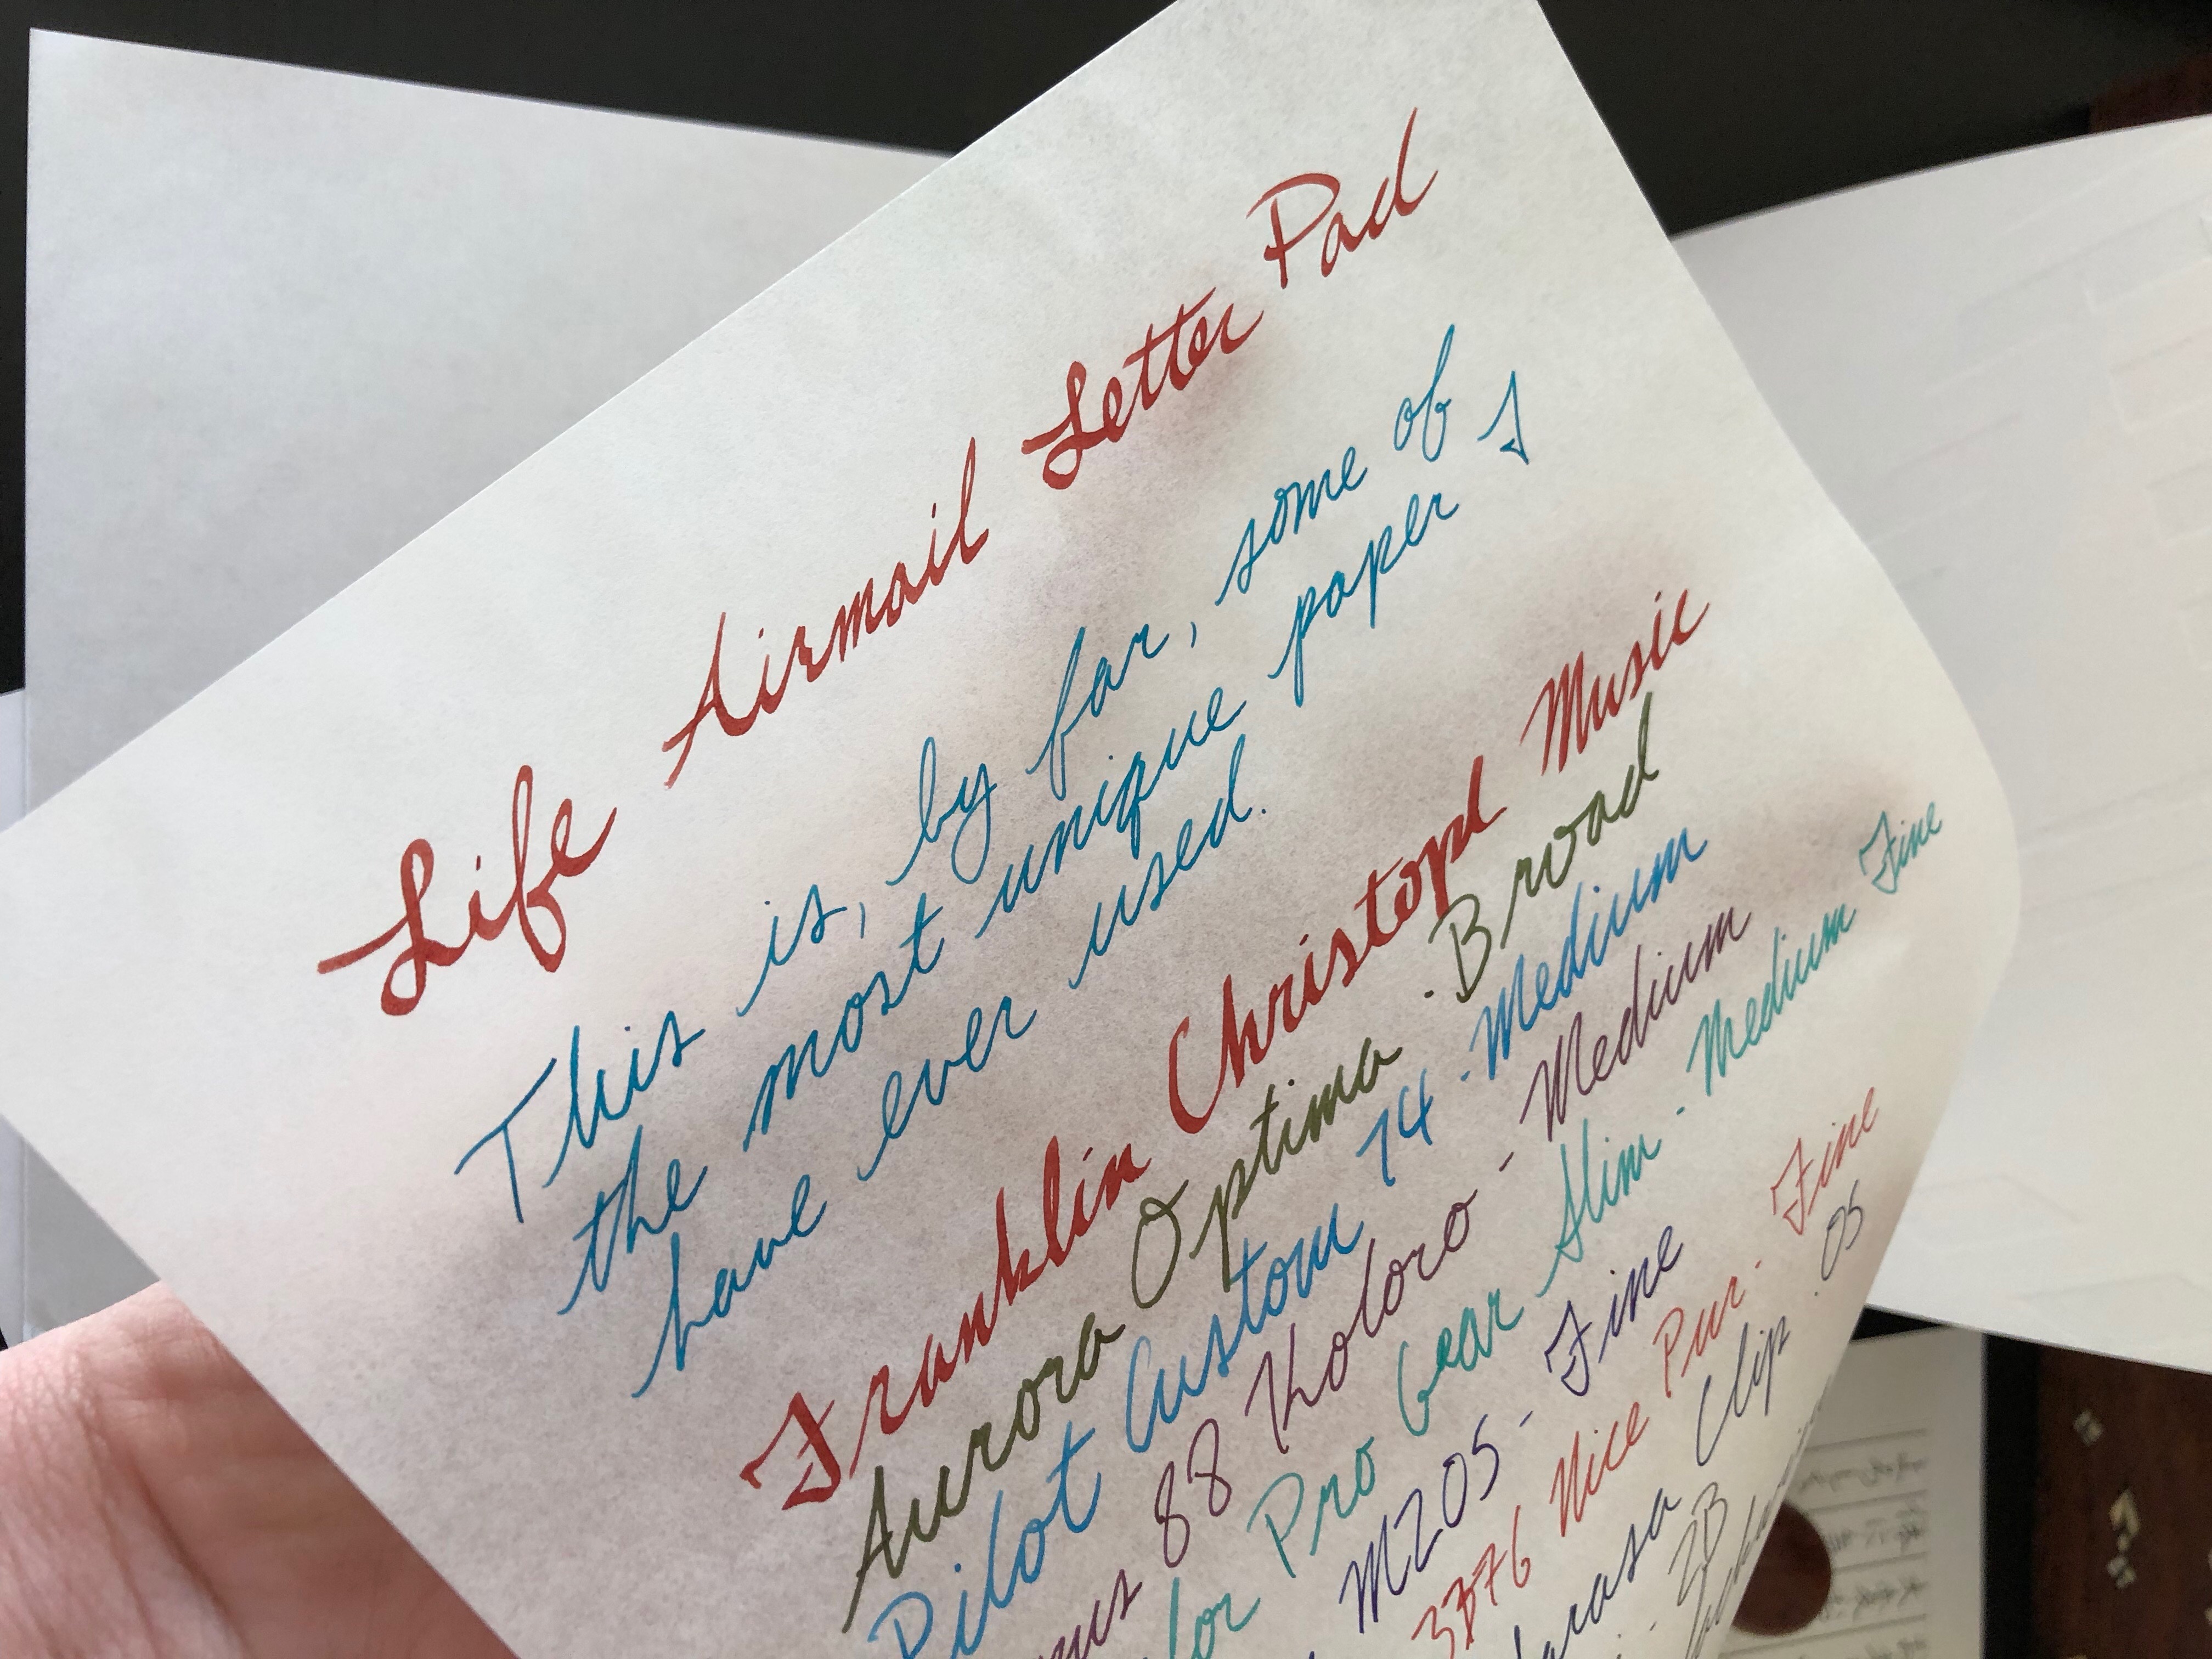 Life Airmail Letter Pad
This is, by far, some of
the most unique paper I
have ever used.
Franklin Christoph Music
Aurora Optima - Broad
Pilot Custom 74 - Medium
88 Koloro - Medium
Pro Gear Slim - Medium Fine
M205 - Fine
3776 Nice Pur - Fine
Clip .05
2B